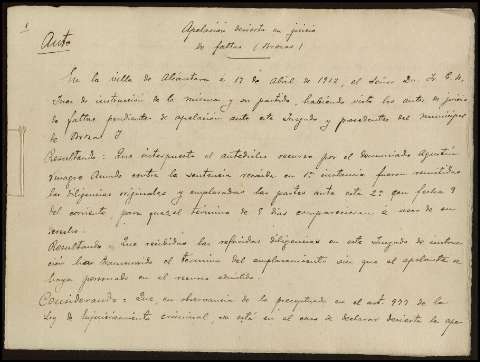 1
Apelación desierta en juicio
de faltas (Brozas)
Auto
En la villa de Alcántara á 17 de Abril de 1912, el Señor Dr.
Juez de instrucción de la misma y su partido, habiendo visto los autos de juicio
de faltas pendientes de apelación ante este Juzgado y procedentes del municipal
de Brozas y
Resultando: Que interpuesto el antedicho recurso por el denunciado Agustín
Amado contra la sentencia recaida en 1ª instancia fueron remitidas
las diligencias originales y emplazadas las partes ante esta 2ª con fecha 9
del corriente, para que en el término de 5 dias comparecieran á usar de su
derecho.
Resultando = Que recibidas las referidas diligencias en este Juzgado de instruc-
ción ha transcurrido el término del emplazamiento sin que el apelante se
haya personado en el recurso admitido.
Considerando: Que, en observancia de lo preceptuado en el art. 977 de la
Ley de Enjuiciamiento criminal, se está en el caso de declarar desierta la ape-